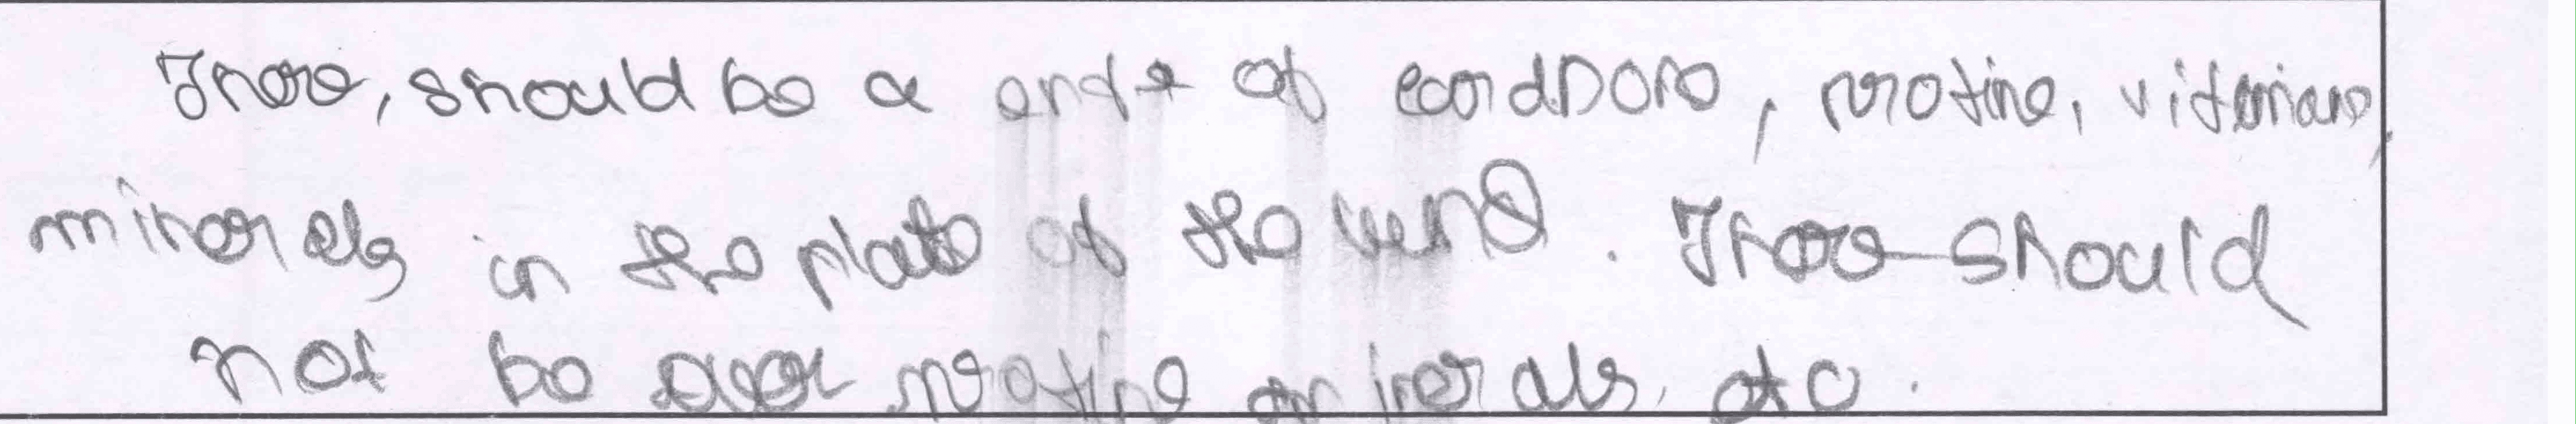 There, should be a of carbons, protine, vitamians,
minerals in the plate of the . There should
not be over protine minerals, etc.